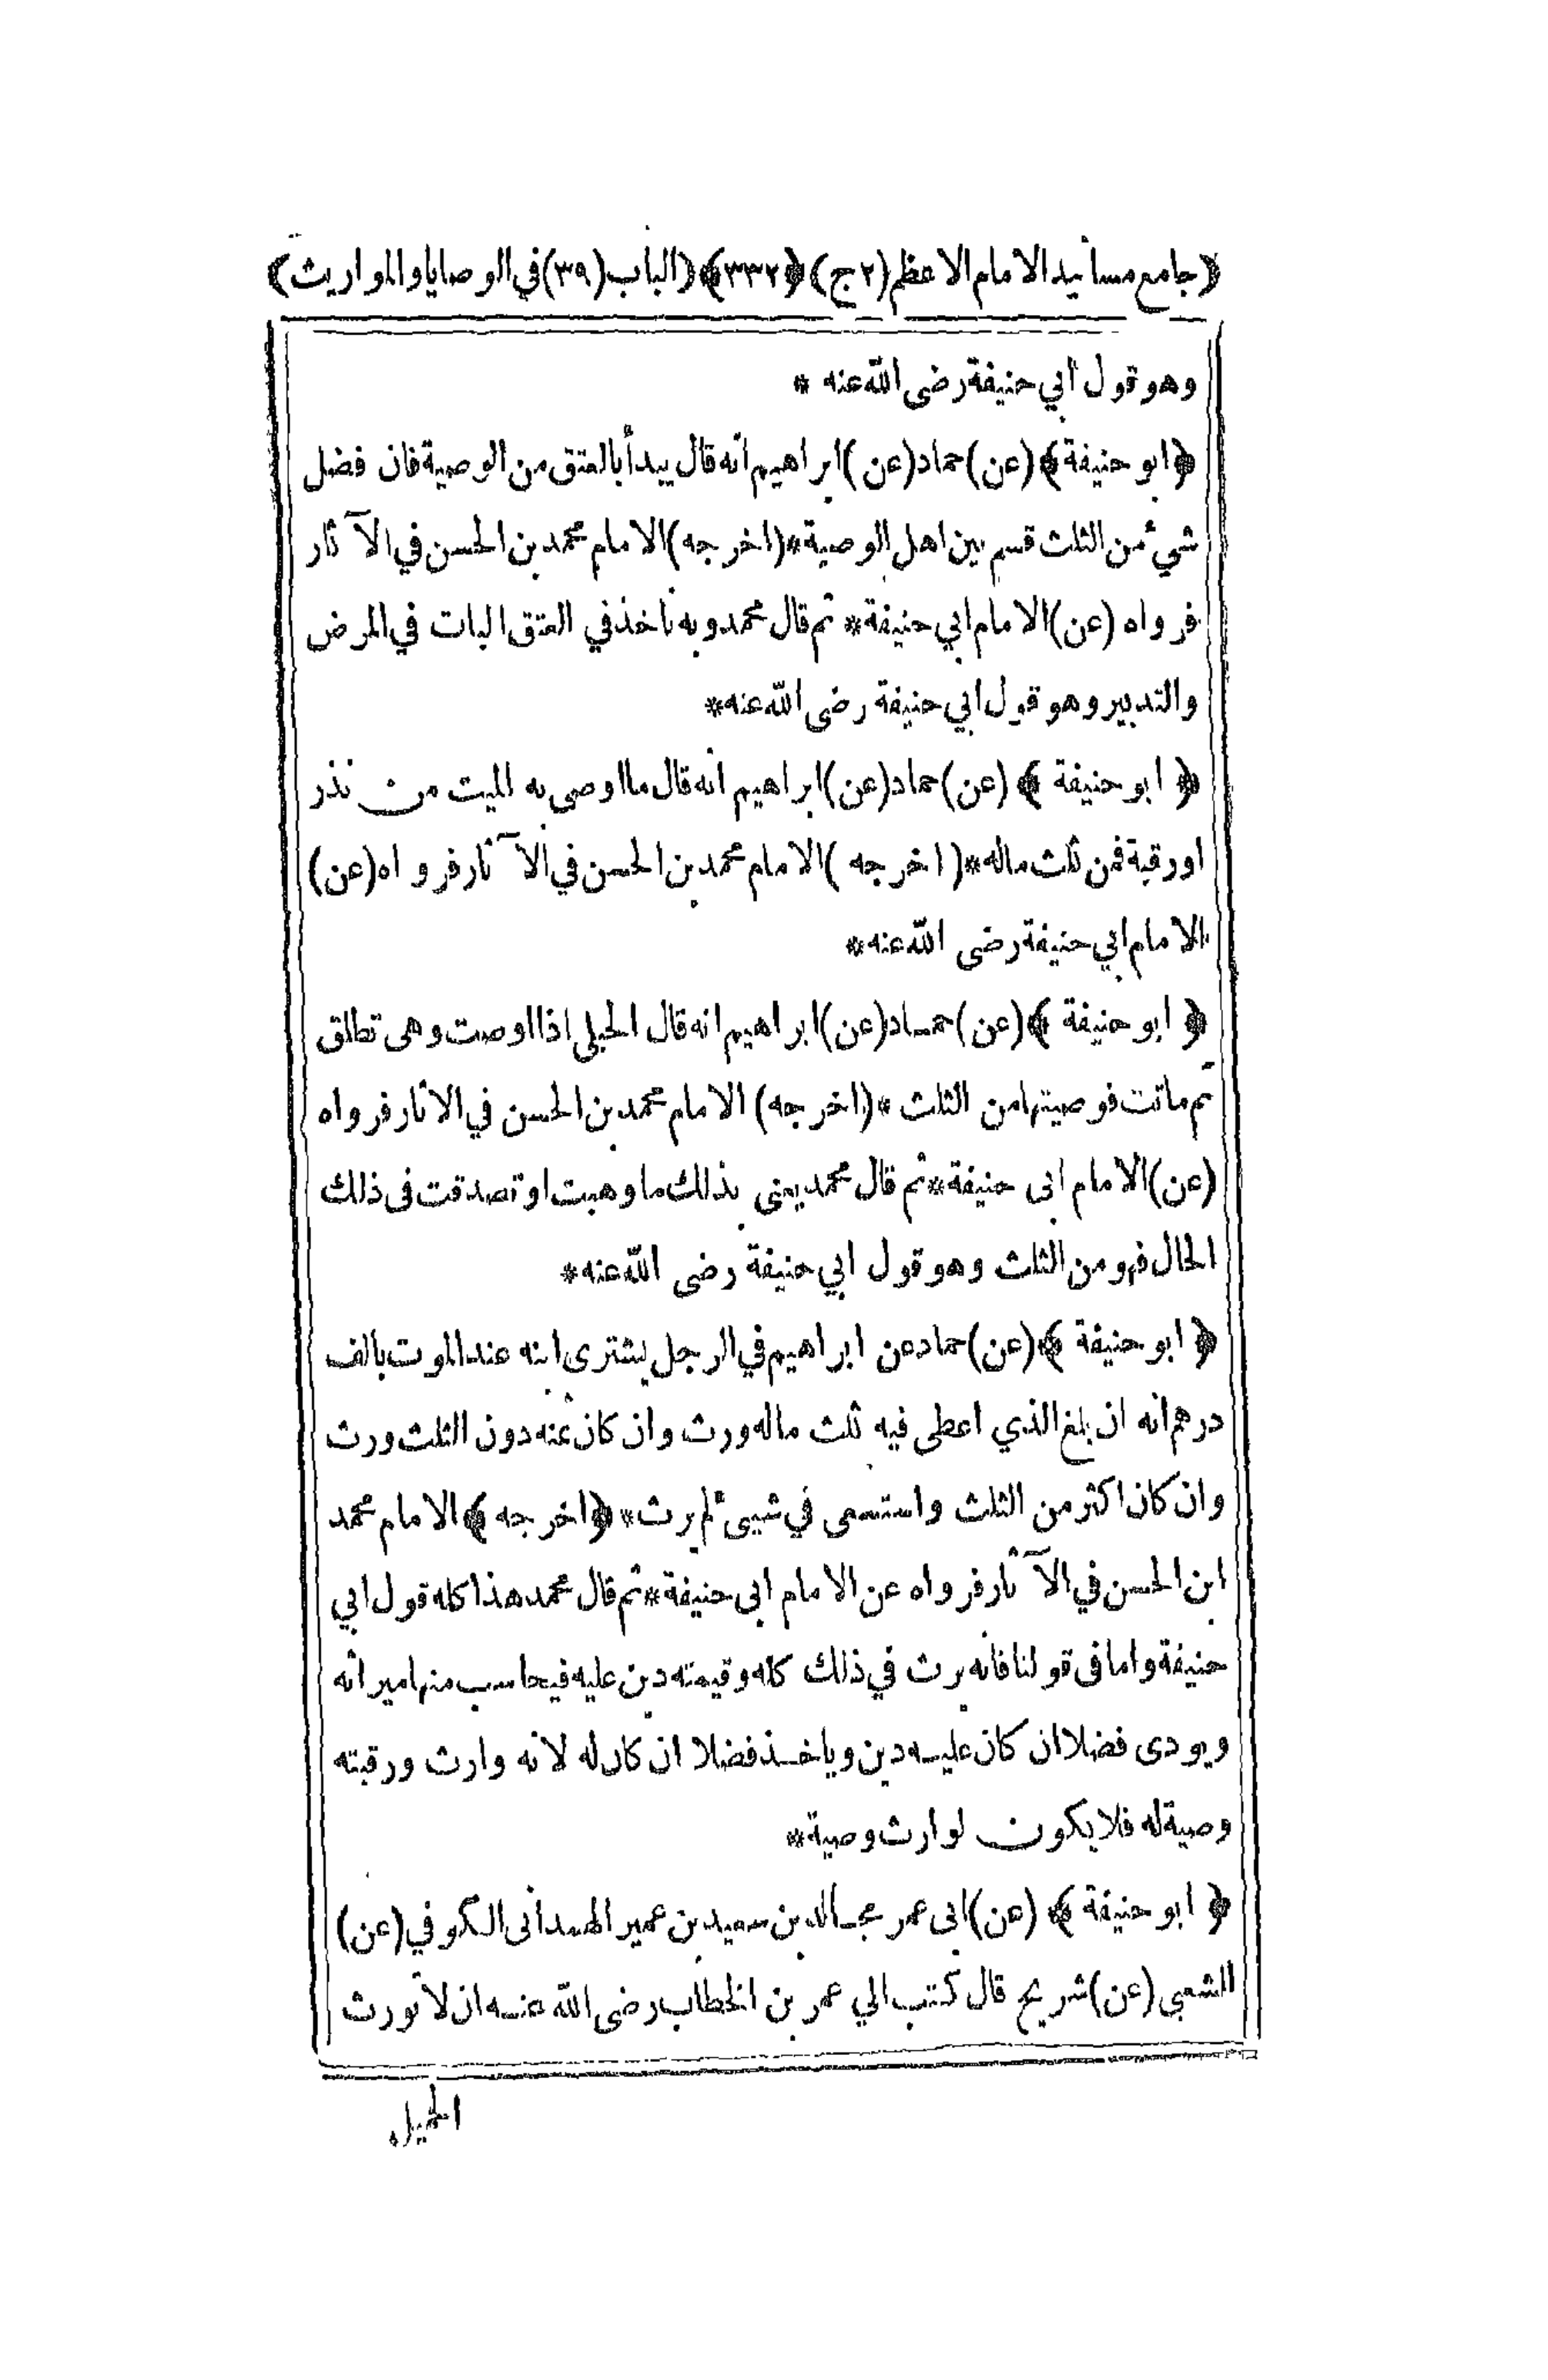 ﴿جامع مسانيد الامام الاعظم (٢ج)﴾ ﴿٣٣٢﴾ ﴿الباب (٣٩) في الوصايا والمواريث﴾
وهو قول أبي حنيفة رضى الله عنه *
﴿ابو حنيفة﴾ (عن) حماد (عن) ابراهيم انه قال يبدأ بالعتق من الوصية فان فضل
شيء من الثلث قسم بين اهل الوصية * (اخرجه) الامام محمد بن الحسن في الآثار
فرواه (عن) الامام ابي حنيفة * ثم قال محمد وبه ناخذ في العتق البات في المرض
والتدبير وهو قول ابي حنيفة رضى الله عنه *
﴿ابو حنيفة﴾ (عن) حماد (عن) ابراهيم انه قال ما اوصى به الميت من نذر
او رقبة فمن ثلث ماله * (اخرجه) الامام محمد بن الحسن في الآثار فرواه (عن)
الامام ابي حنيفة رضى الله عنه *
﴿ابو حنيفة﴾ (عن) حماد (عن) ابراهيم انه قال الحبلى اذا اوصت وهى تطلق
ثم ماتت فوصيتها من الثلث * (اخرجه) الامام محمد بن الحسن في الاثار فرواه
(عن) الامام ابى حنيفة * ثم قال محمد يعنى بذلك ما وهبت او تصدقت فى ذلك
الحال فهو من الثلث وهو قول ابي حنيفة رضى الله عنه *
﴿ابو حنيفة﴾ (عن) حماد عن ابراهيم في الرجل يشترى ابنه عند الموت بالف
درهم انه ان بلغ الذي اعطى فيه ثلث ماله ورث وان كان ثمنه دون الثلث ورث
وان كان اكثر من الثلث واستسعى في شيىء لم يرث * ﴿اخرجه﴾ الامام محمد
ابن الحسن في الآثار فرواه عن الامام ابى حنيفة * ثم قال محمد هذا كله قول ابي
حنيفة واما فى قولنا فانه يرث في ذلك كله وقيمته دين عليه فيحاسب منها ميراثه
ويودى فضلا ان كان عليه دين وياخذ فضلا ان كان له لانه وارث ورقبته
وصية له فلا يكون لوارث وصية *
﴿ابو حنيفة﴾ (عن) ابى عمر مجالد بن سعيد بن عمير الهمدانى الكوفي (عن)
الشعبي (عن) شريح قال كتب الي عمر بن الخطاب رضى الله عنه ان لا تورث
الحميل